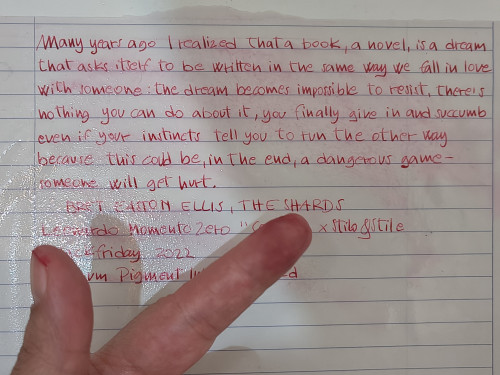 Many years ago I realized that a book, a novel, is a dream
that asks itself to be written in the same way we fall in love
with someone: the dream becomes impossible to resist, there is
nothing you can do about it, you finally give in and succumb
even if your instincts tell you to run the other way
because this could be, in the end, a dangerous game–
someone will get hurt.
BRET EASTON ELLIS, THE SHARDS
Leonardo Momento Zero " x Stilo&Stile
friday 2022
Pigment